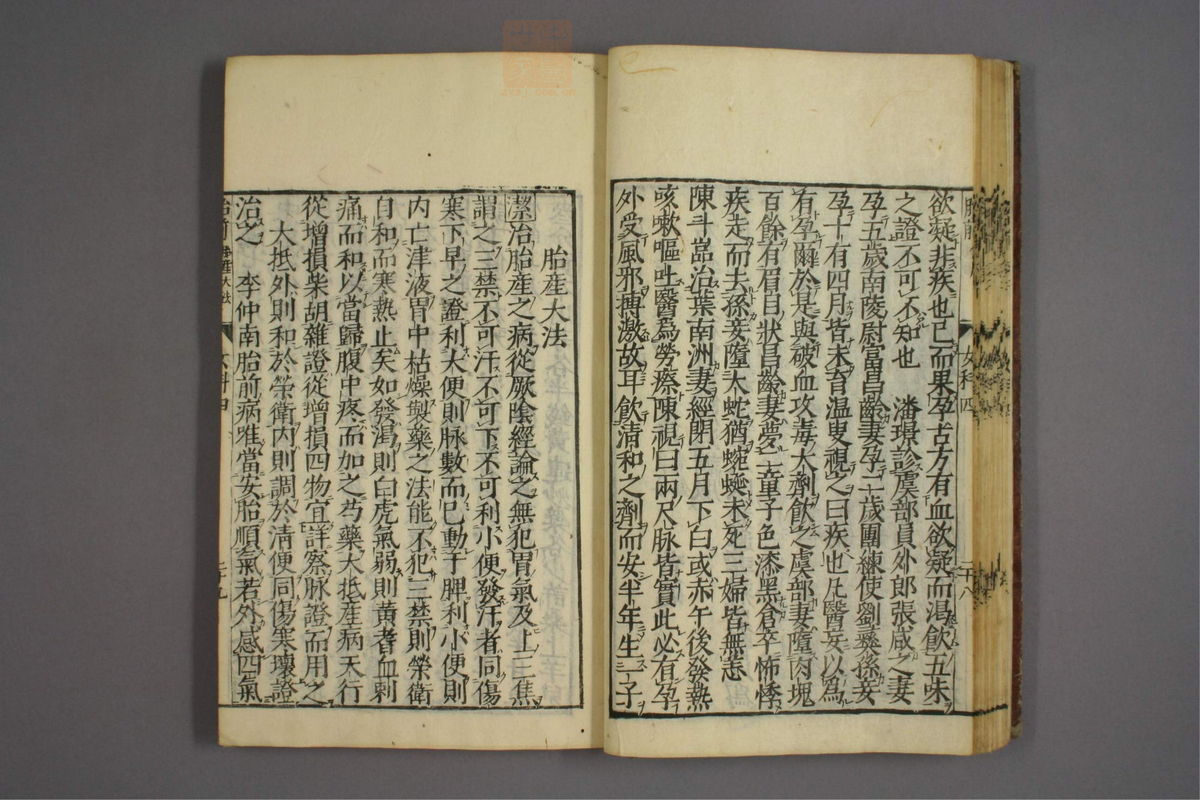 胎前 女科四 三十八
欲凝非疾也已而果孕古方有血欲凝而渴飲五味
之證不可不知也 潘璟診虞部員外郎張咸之妻
孕五歲南陵尉富昌齡妻孕二歲團練使劉彝孫妾
孕十有四月皆未育温叟視之曰疾也凡醫妄以為
有孕爾於是與破血攻毒大劑飲之虞部妻墮肉塊
百餘有眉目狀昌齡妻夢二童子色漆黑倉卒怖悸
疾走而去孫妾墮大蛇猶蜿蜒未死三婦皆無恙
陳斗嵓治葉南洲妻經閉五月下白或赤午後發熱
咳嗽嘔吐醫為勞瘵陳視曰兩尺脉皆實此必有孕
外受風邪搏激故耳飲清和之劑而安半年生一子
胎產大法
潔治胎產之病從厥陰經論之無犯胃氣及上二焦
謂之三禁不可汗不可下不可利小便發汗者同傷
寒下早之證利大便則脉數而已動于脾利小便則
内亡津液胃中枯燥製藥之法能不犯三禁則榮衛
自和而寒熱止矣如發渴則白虎氣弱則黄耆血刺
痛而和以當歸腹中疼而加之芍藥大抵產病天行
從增損柴胡雜證從增損四物宜詳察脉證而用之
大抵外則和於榮衛内則調於清便同傷寒壞證
治之 李仲南胎前病唯當安胎順氣若外感四氣
胎前 胎產大法 女科四 三十九